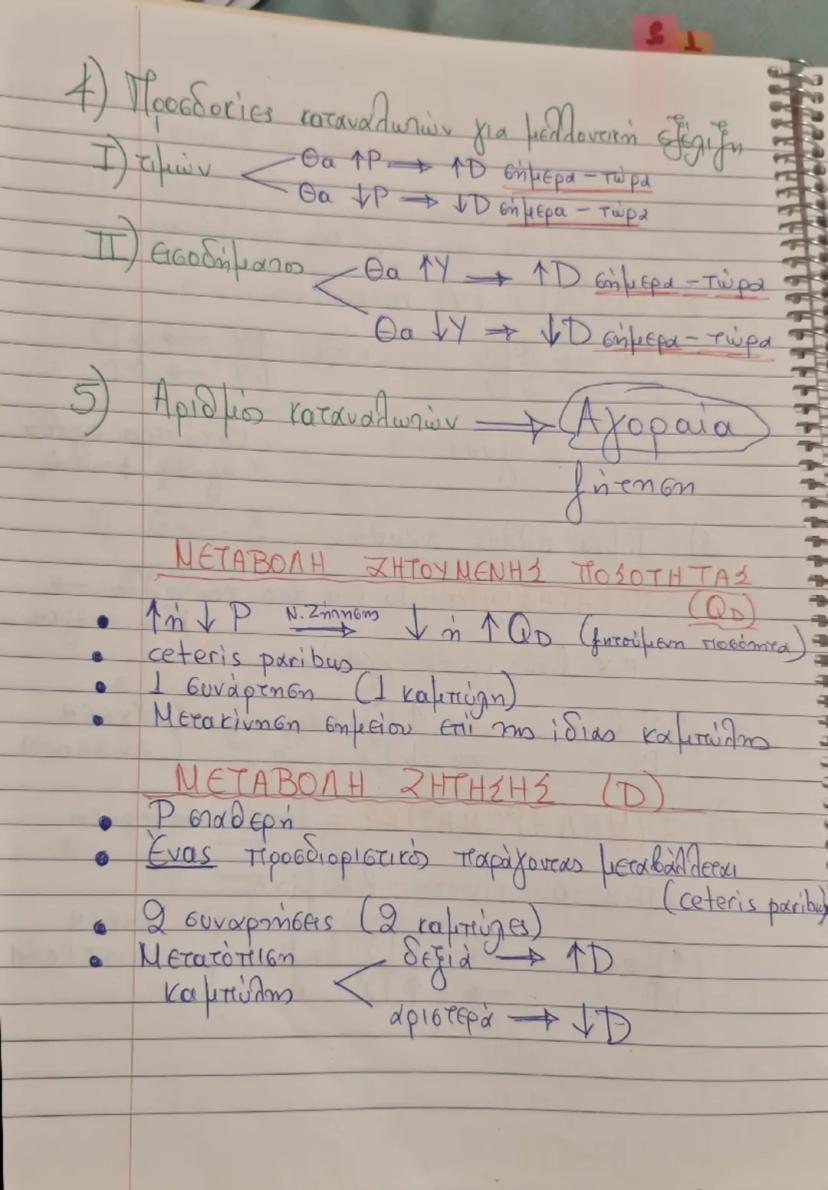 4) Προσδοκίες καταναλωτών για μελλοντική εξέλιξη
I) τιμών
Θα ↑P → ↑D σήμερα - τώρα
Θα ↓P → ↓D σήμερα - τώρα
II) εισοδήματος
Θα ↑Y → ↑D σήμερα - τώρα
Θα ↓Y → ↓D σήμερα - τώρα
5) Αριθμός καταναλωτών → Αγοραία
ζήτηση
ΜΕΤΑΒΟΛΗ ΖΗΤΟΥΜΕΝΗΣ ΠΟΣΟΤΗΤΑΣ
(QD)
• ↑ή↓ P Ν.Ζήτησης → ↓ ή ↑ QD (ζητούμενη ποσότητα)
• ceteris paribus
• 1 συνάρτηση (1 καμπύλη)
• Μετακίνηση σημείου επί της ίδιας καμπύλης
ΜΕΤΑΒΟΛΗ ΖΗΤΗΣΗΣ (D)
• P σταθερή
• Ένας προσδιοριστικός παράγοντας μεταβάλλεται
(ceteris paribus)
• 2 συναρτήσεις (2 καμπύλες)
• Μετατόπιση δεξιά → ↑D
καμπύλης
αριστερά → ↓D